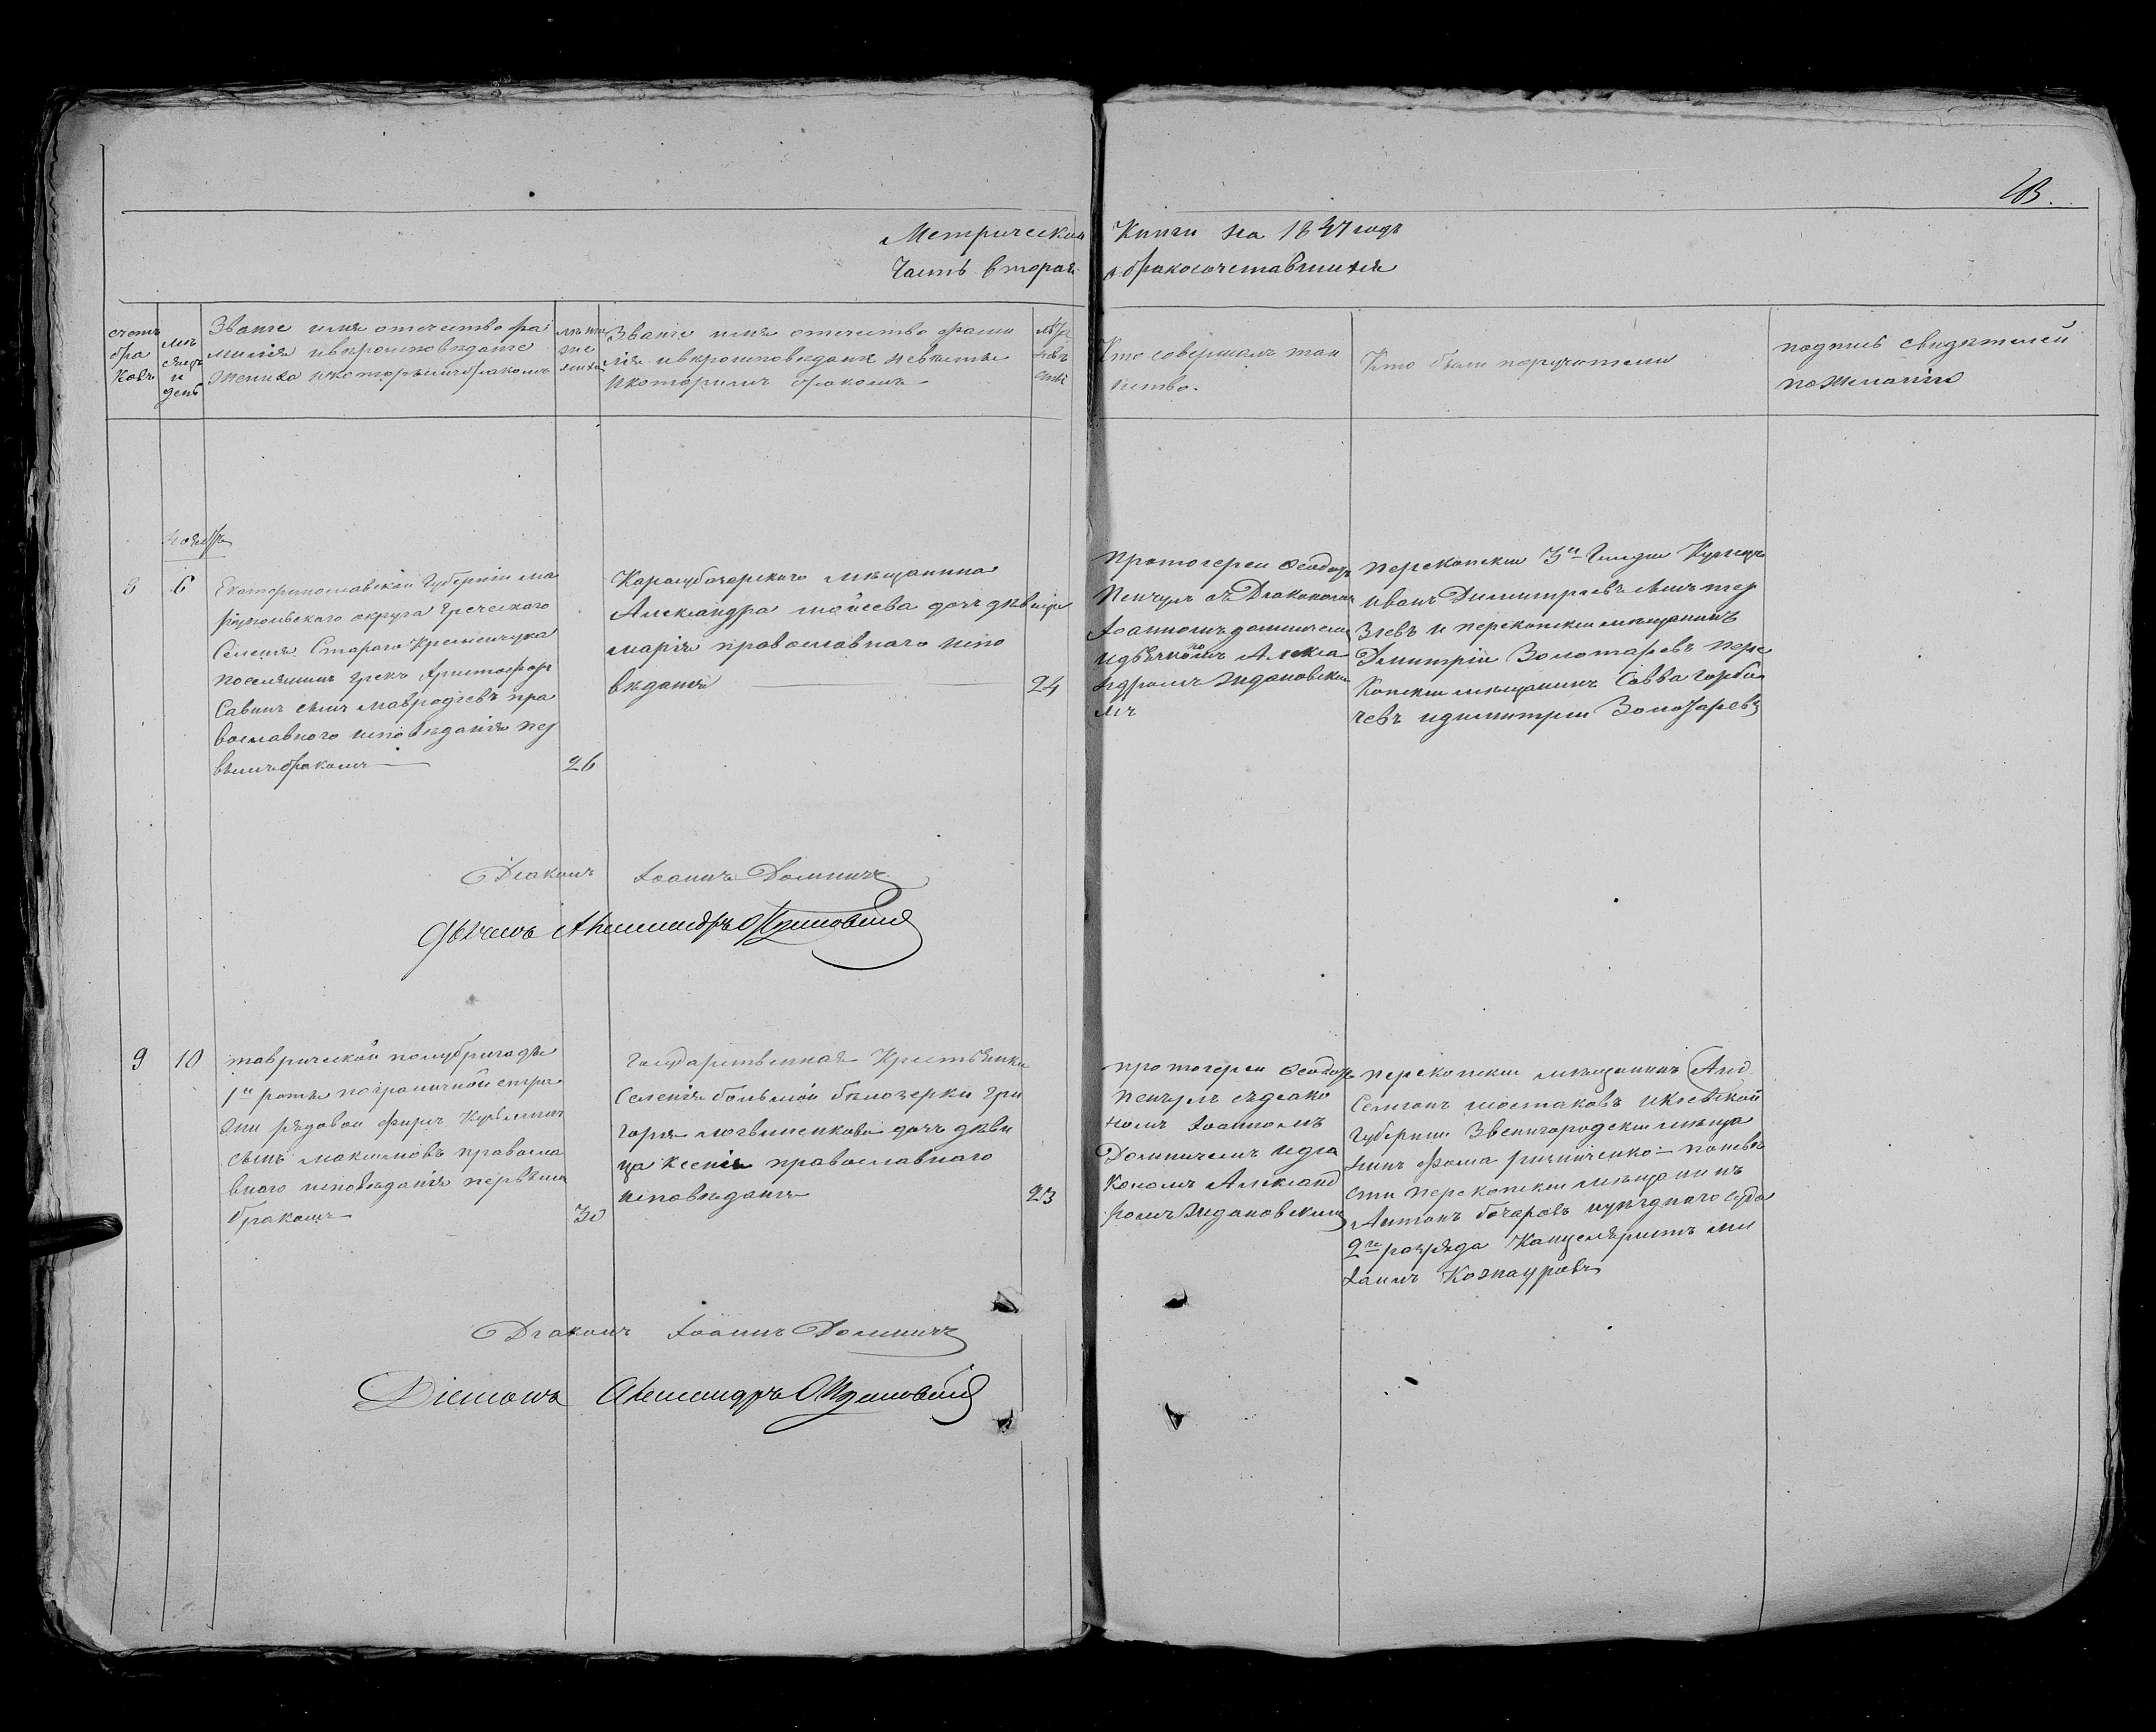 Метрической Книги на 1847 годъ
Часть вторая о бракосочетавшихся
счетъ браковъ
мѣсяцъ и день
Званіе имя отечество фамилія и вѣроисповѣданіе жениха и которымъ бракомъ
лѣта жениха
Званіе имя отечество фамилія и вѣроисповѣданіе невѣсты и которымъ бракомъ
лѣта невѣсты
Кто совершалъ таинство.
Кто были поручители
подпись свидѣтелей по желанію
ноябрь
8
6
Екатеринославской Губерніи Ма
ріупольского округа греческого
Селенія Стараго Крыменчука
поселянинъ грекъ Христофор
Савинъ сынъ Мавродіевъ пра
вославного исповѣданія пер
вымъ бракомъ
26
Карасубазарского мѣщанина
Александра Мойсеева дочь дѣвица
Марія православного испо
вѣданія
24
Протоіереи Ѳеодоръ
Пенчулъ съ Діакономъ
Іоанномъ Домничемъ
и дьячкомъ Алекса
ндромъ Ждановски
мъ
перекопскіи 3й Гильдіи Купецъ
Иванъ Димитріевъ сынъ
и перекопскіи мѣщанинъ
Дмитріи Золотаревъ пере
копскіи мѣщанинъ Савва Горба
чевъ и димитріи Золотаревъ
Діаконъ Іоаннъ Домничъ
Дьячекъ Александръ Ждановскій
9
10
таврической полубригады
1й роты пограничной стра
жи рядовои Фирсъ Кузьминъ
сынъ Максимовъ правосла
вного исповѣданія первымъ
бракомъ
30
Государственная Крестьянка
Селенія большой бѣлозерки Гри
горія Логвиненкова дочь дѣви
ца Ксенія православного
исповѣданія
23
протоіереи Ѳеодоръ
Пенчулъ съ діако
номъ Іоанномъ
Домничемъ и діа
кономъ Александ
ромъ Ждановскимъ
перекопскіи мѣщанинъ
Семіонъ Шостаковъ и кіевской
Губерніи Звенигородскіи мѣща
нинъ Фома - по невѣ
сти перекопскіи мѣщанинъ
Антонъ Бочаровъ и уѣзднаго суда
2го разряда Канцеляристъ Ми
хаилъ Кознауровъ
Діаконъ Іоаннъ Домничъ
Діаконъ Александръ Ждановскій